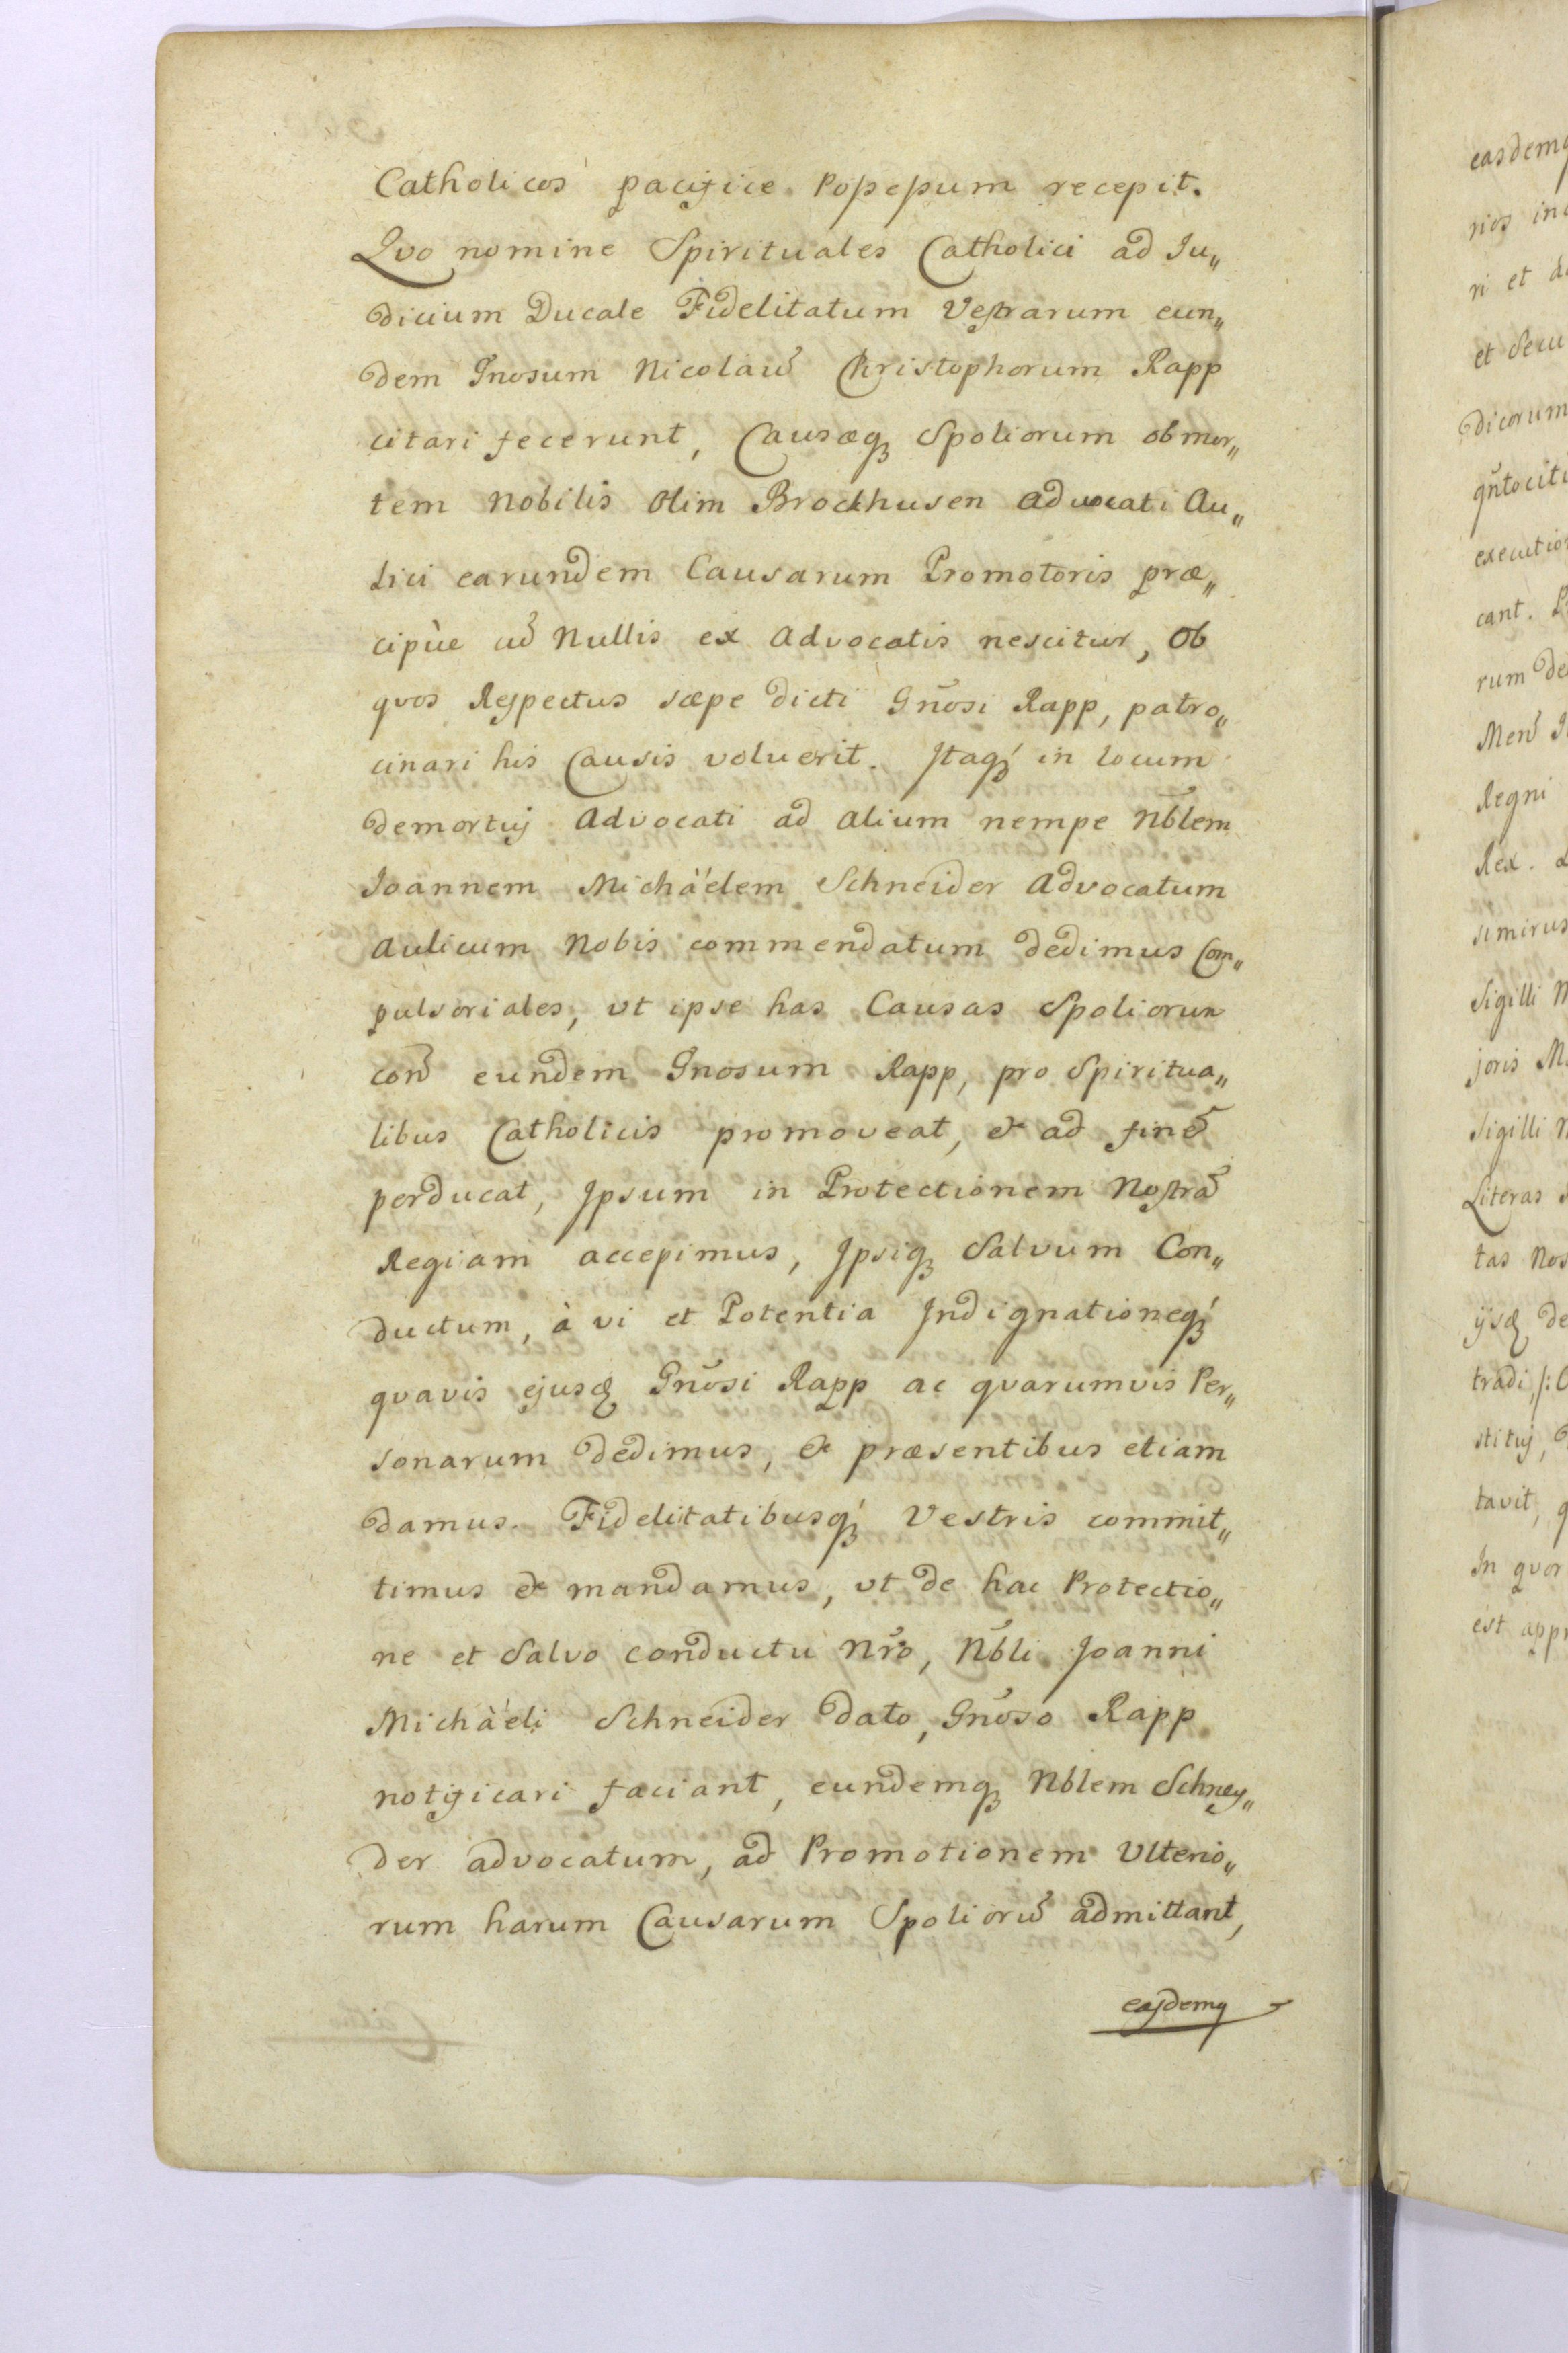 Catholicos pacifice Possessum recepit.
Qvo nomine Spirituales Catholici ad Ju„
dicium Ducale Fidelitatum Vestrarum eun„
dem Gnosum Nicolaũ Christophorum Rapp
citari fecerunt, Causæq₃ Spoliorum ob mor„
tem Nobilis Olim Brockhusen advocati Au„
lici earundem Causarum Promotoris præ„
cipùe cũ Nullis ex Advocatis nescitur, Ob
qvos Respectus sæpe dicti Gn̄osi Rapp, patro„
cinari his Causis voluerit. Itaq₃ in locum
demortuj Advocati ad alium nempe Nb̄lem
Joannem Michàelem Schneider Advocatum
Aulicum Nobis commendatum dedimus Com„
pulsoriales, vt ipse has Causas Spoliorum
con̄ eundem Gnosum Rapp, pro Spiritua„
libus Catholicis promoveat, & ad finẽ
perducat, Ipsum in Protectionem Nostrã
Regiam accepimus, Ipsiq₃ Salvum Con„
ductum, à vi et Potentia Indignationeq₃
qvavis ejusq₃ Gn̄osi Rapp ac qvarumvis Per„
sonarum dedimus, & præsentibus etiam
damus. Fidelitatibusq₃ Vestris commit„
timus & mandamus, vt de hac Protectio„
ne et Salvo conductu Nr̄o, Nb̄li Joanni
Michàeli Schneider dato, Gn̄oso Rapp
notificari faciant, eundemq₃ Nblem Schney„
der advocatum, ad Promotionem Ulterio„
rum harum Causarum Spoliorũ admittant,
easdemq
easdemq
rios
ri et
et
dicorum
cant.
rum
Regni
Rex.
Sigilli
joris
Sigilli
Literas
tas Nos
tradi /:
tavit,
In qvor
est